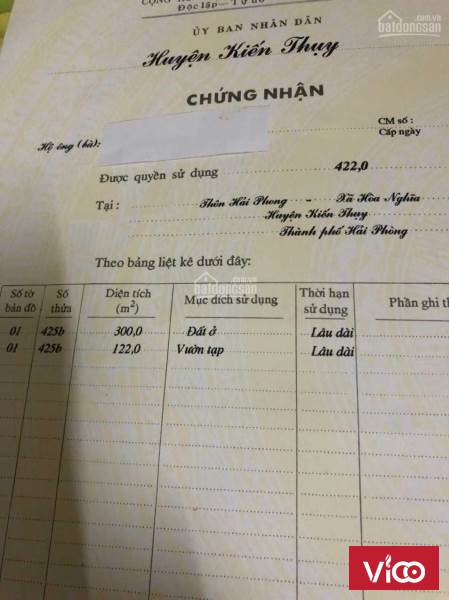 Độc lập - Tự do
ỦY BAN NHÂN DÂN
Huyện Kiến Thụy
CHỨNG NHẬN
CM số :
Cấp ngày
Hộ ông (bà):
Được quyền sử dụng 422,0
Tại : Thôn Hải Phong - Xã Hòa Nghĩa
Huyện Kiến Thụy
Thành phố Hải Phòng
Theo bảng liệt kê dưới đây:
Số tờ bản đồ Số thửa Diện tích (m²) Mục đích sử dụng Thời hạn sử dụng Phần ghi
01 425b 300,0 Đất ở Lâu dài
01 425b 122,0 Vườn tạp Lâu dài
batdongsan
.com.vn
batdongsan
vico